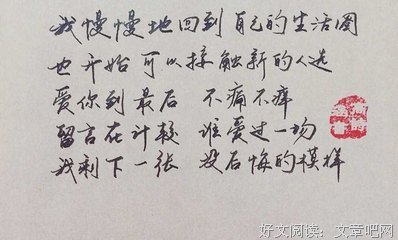 我慢慢地回到自己的生活圈
也开始可以接触新的人选
爱你到最后 不痛不痒
留言在计较 谁爱过一场
我剩下一张 没后悔的模样
好文阅读：文章吧网